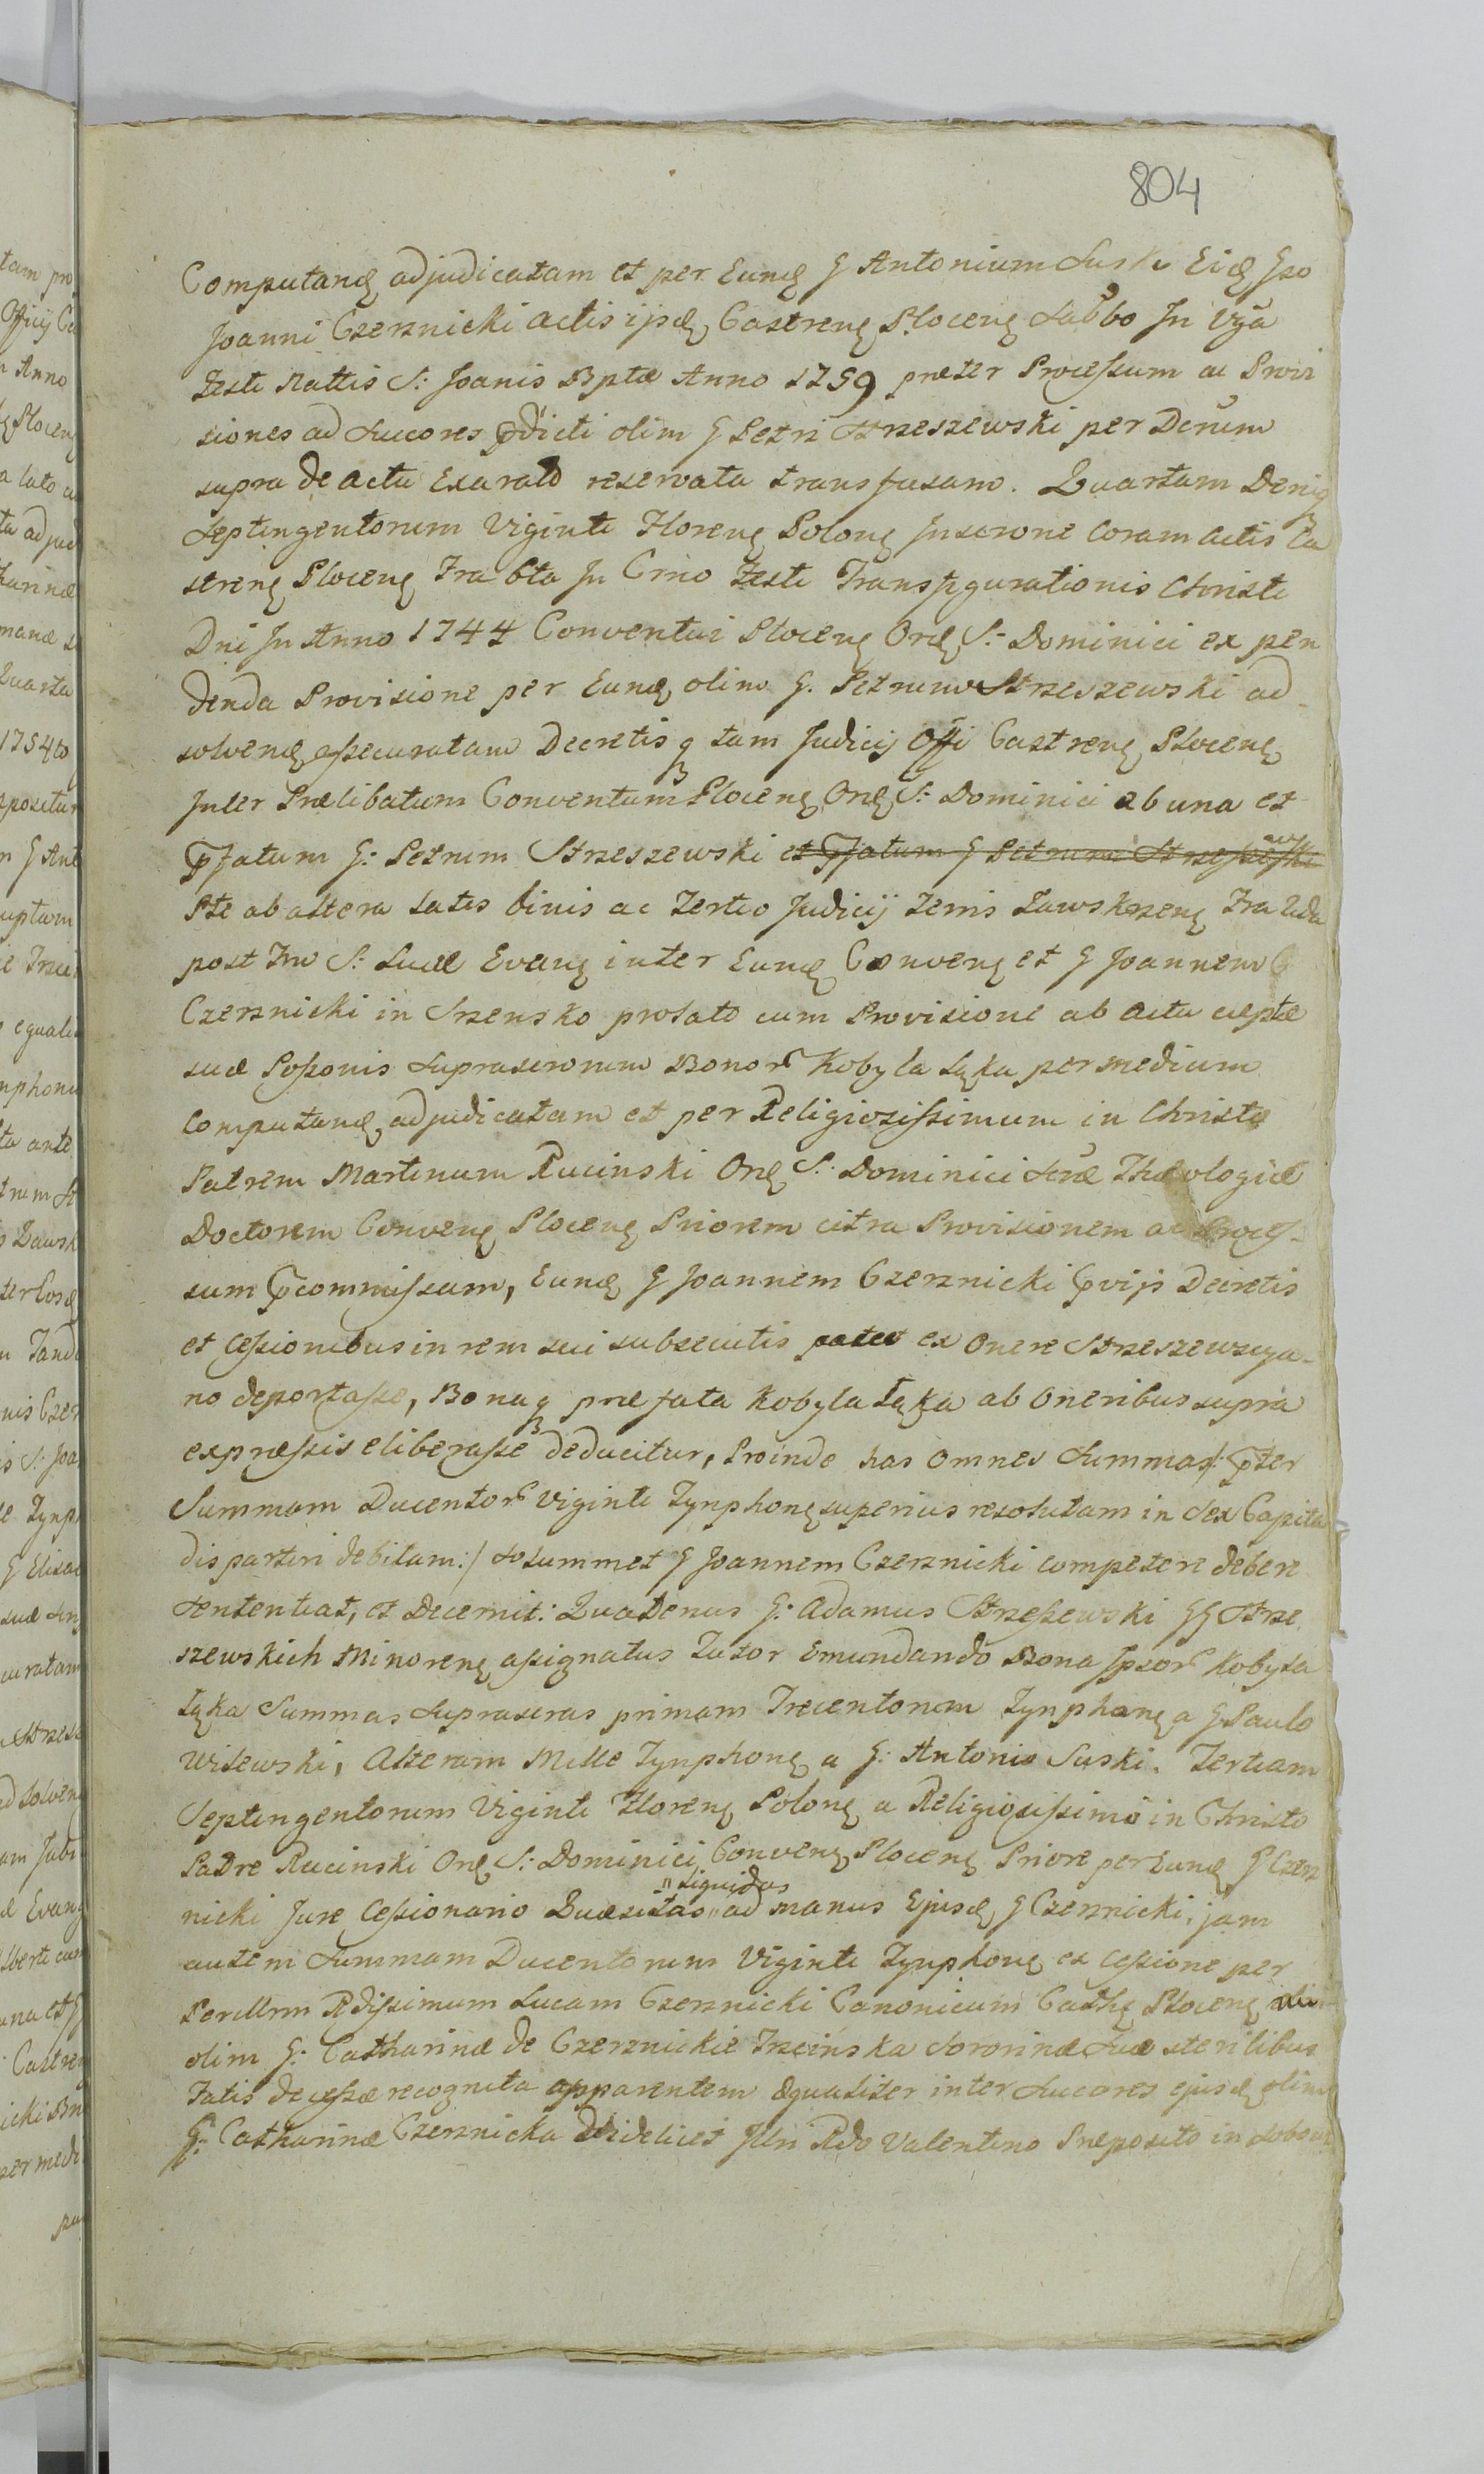 804
Computanđ adjudicatam et per Eunđ G Antonium Suski Eiđ Gso
Joanni Czerznicki actis ijsđ Castrenę Plocenę Sabbo In Vga
Festi Nattis S: Joanis Bptæ Anno 1759 præter Processum ac Provi
siones ad Succores pdicti olim G Petri Strzeszewski per Decum
supra de actu Exarato reservata transfusam. Quartam Deniq
Septingentorum Viginti Florenę Polonę Inscrone coram Actis Ca
strenę Plocenę Fra 6ta In Crno Festi Transfigurationis Christi
Dni In Anno 1744 Conventui Plocenę Ordę S: Dominici ex pen
denda Provisione per Eunđ olim G. Petrum Strzeszewski ad
solvenđ assecuratam Decretisq tam Judicij Offi Castrenę Plocenę
Inter Prælibatum Conventum Plocenę Ordę S: Dominici ab una et
Pfatum G: Petrum Strzeszewski et Pfatum G Petrum Strzeszewski
Pte ab altera Latis binis ac Tertio Judicij Terris Zawskrzenę Fra 2da
post Fm S: Lucæ Evanę inter Eunđ Convenę et G Joannem C
Czerznicki in Srzensko prolato cum Provisione ab Actu cæptæ
suæ Possonis Suprascronum Bonor Kobyla Łąka permedium
Computanđ adjudicatam et per Religiosissimum in Christo
Patrem Martinum Rucinski Ordę S: Dominici Sræ Theologiæ
Doctorem Convenę Plocenę Priorem citra Provisionem ac Proces-
sum pcommissam, Eunđ G Joannem Czerznicki pvijs Decretis
et Cessionibus in rem sui subsecutis patet ex Onere Strzeszewscya-
no deportasse, Bonaq præfata Kobyla Łąka ab Oneribus supra
expressis eliberasse deducitur, Proinde has Omnes Summas /: pter
Summam Ducentor Viginti Tynphonę superius resolutam in Sex Capita
dispartiri debitam :/ Solummet G Joannem Czerznicki competere debere
Sententiat, et Decernit: Quatenus G: Adamus Strzeszewski GG Strze
szewskich Minorenę assignatus Tutor Emundando Bona Ipsor Kobyla
Łąka Summas Suprascras primam Trecentorum Tynphonę a G Paulo
Wisewski, Alteram Mille Tynphonę a G: Antonio Suski. Tertiam
Septingentorum Viginti Florenę Polonę a Religiosissimo in Christo
Patre Rucinski Ordę S: Dominici Convenę Plocenę Priore per Eunđ G Czerz
nicki Jure Cessionario Quæsitas "Liquidas" ad manus Ejusđ G Czerznicki, jam
autem Summam Ducentorum Viginti Tynphonę ex Cessione per
Perillrm Rdissimum Lucam Czerznicki Canonicum Cathę Plocenę
olim G: Catharinæ de Czerznickie Trzcinska Sororinæ Suæ sterilibus
Fatis decessæ recognita apparentem æqualiter inter Succores ejusđ olim
G: Catharinæ Czerznicka videlicet Illri Rdo Valentino Præposito in